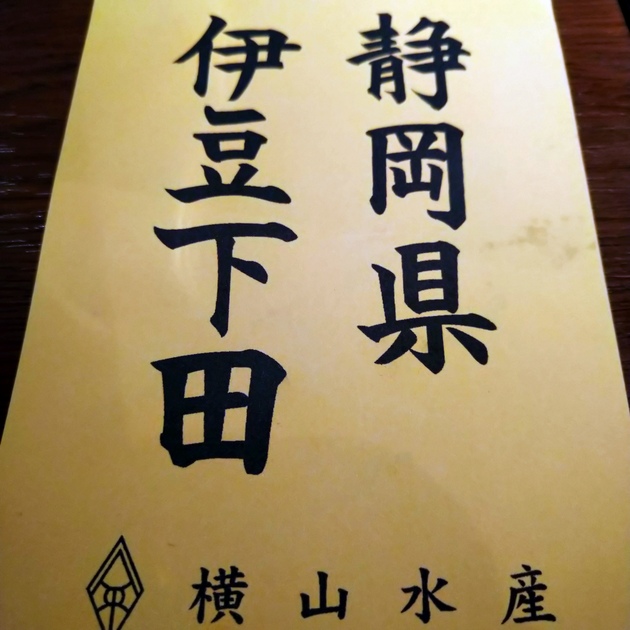 静岡県
伊豆下田
横山水産